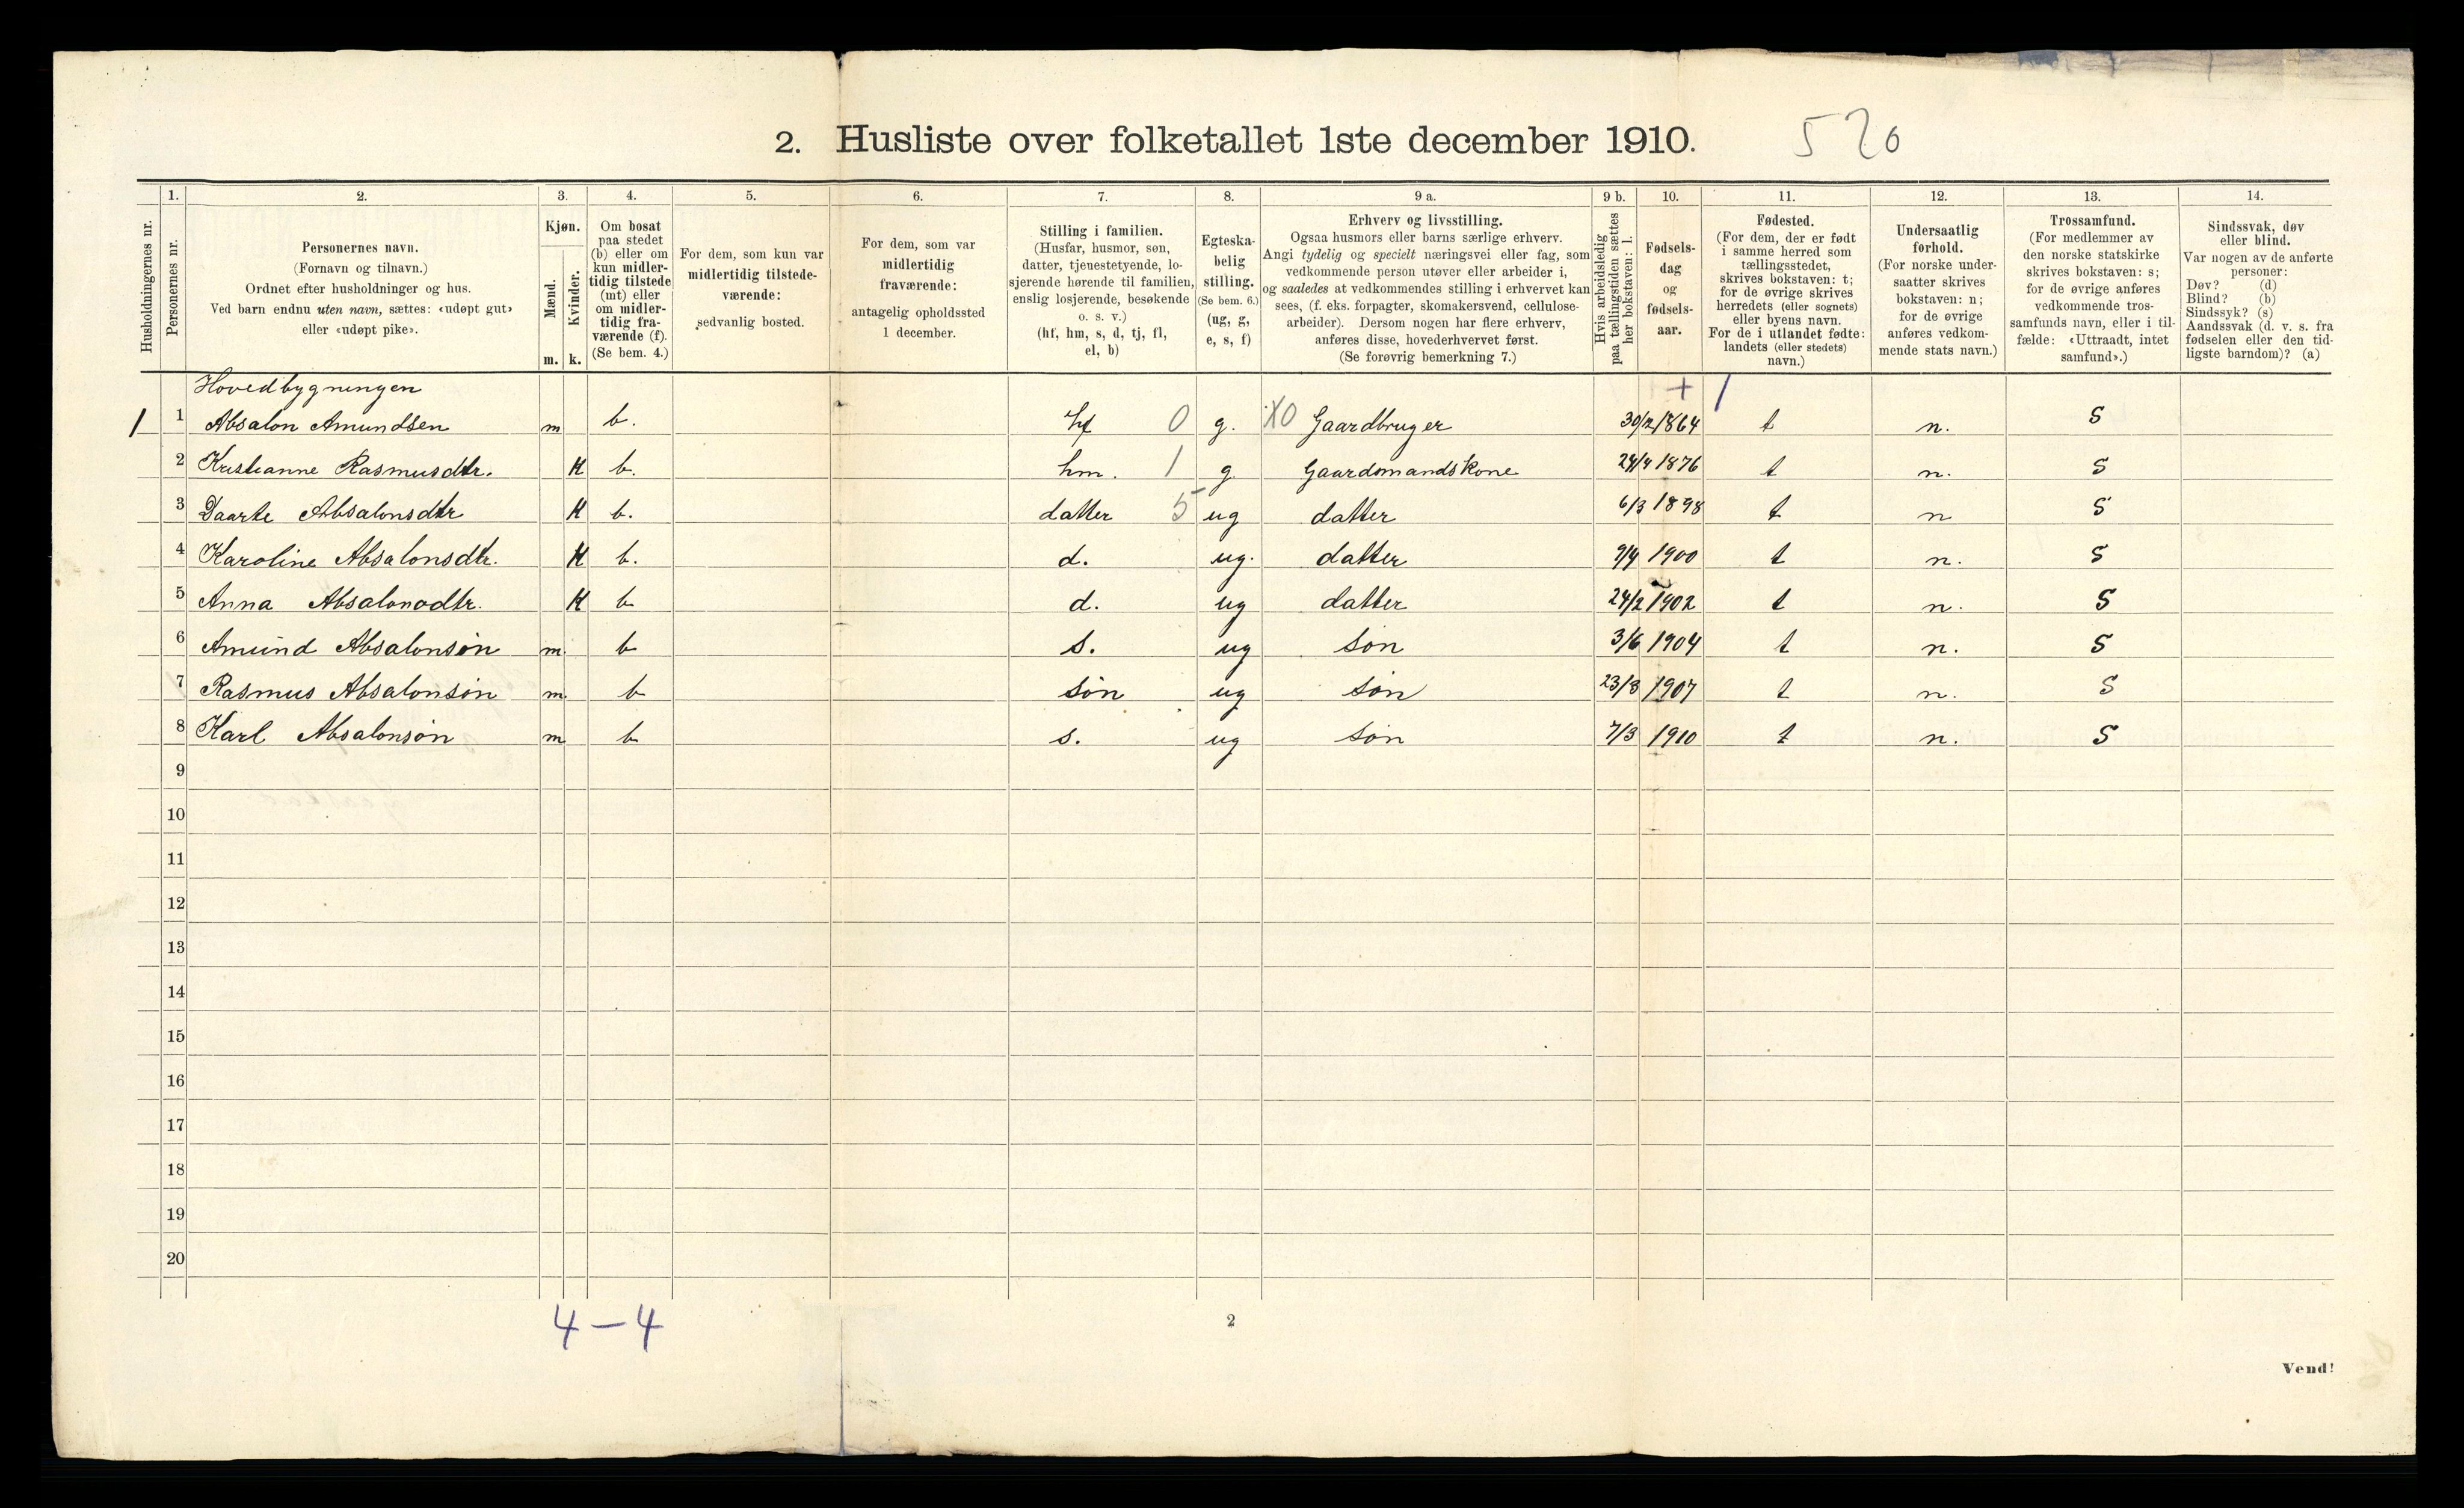 2. Husliste over folketallet 1ste december 1910. 520
Husholdningernes nr.
1. Personernes nr.
2. Personernes navn.
(Fornavn og tilnavn.)
Ordnet efter husholdninger og hus.
Ved barn endnu uten navn, sættes: «udøpt gut»
eller «udøpt pike».
3. Kjøn.
Mænd. m.
Kvinder. k.
4. Om bosat
paa stedet
(b) eller om
kun midler-
tidig tilstede
(mt) eller
om midler-
tidig fra-
værende (f).
(Se bem. 4.)
5. For dem, som kun var
midlertidig tilstede-
værende:
sedvanlig bosted.
6. For dem, som var
midlertidig
fraværende:
antagelig opholdssted
1 december.
7. Stilling i familien.
(Husfar, husmor, søn,
datter, tjenestetyende, lo-
sjerende hørende til familien,
enslig losjerende, besøkende
o. s. v.)
(hf, hm, s, d, tj, fl,
el, b)
8. Egteska-
belig
stilling.
(Se bem. 6.)
(ug, g,
e, s, f)
9 a. Erhverv og livsstilling.
Ogsaa husmors eller barns særlige erhverv.
Angi tydelig og specielt næringsvei eller fag, som
vedkommende person utøver eller arbeider i,
og saaledes at vedkommendes stilling i erhvervet kan
sees, (f. eks. forpagter, skomakersvend, cellulose-
arbeider). Dersom nogen har flere erhverv,
anføres disse, hovederhvervet først.
(Se forøvrig bemerkning 7.)
9 b. Hvis arbeidsledig
paa tællingstiden sættes
her bokstaven: l.
10. Fødsels-
dag
og
fødsels-
aar.
11. Fødested.
(For dem, der er født
i samme herred som
tællingsstedet,
skrives bokstaven: t;
for de øvrige skrives
herredets (eller sognets)
eller byens navn.
For de i utlandet fødte:
landets (eller stedets)
navn.)
12. Undersaatlig
forhold.
(For norske under-
saatter skrives
bokstaven: n;
for de øvrige
anføres vedkom-
mende stats navn.)
13. Trossamfund.
(For medlemmer av
den norske statskirke
skrives bokstaven: s;
for de øvrige anføres
vedkommende tros-
samfunds navn, eller i til-
fælde: «Uttraadt, intet
samfund».)
14. Sindssvak, døv
eller blind.
Var nogen av de anførte
personer:
Døv? (d)
Blind? (b)
Sindssyk? (s)
Aandssvak (d. v. s. fra
fødselen eller den tid-
ligste barndom)? (a)
Hovedbygningen + /
1 1 Absalon Amundsen m b. hf 0 g. X0 Gaardbruger 30/2 1864 t n. S
2 Kristianne Rasmusdtr. K b. hm. 1 g. Gaardmandskone 24/4 1876 t n. S
3 Daarte Absalonsdtr K b. datter 5 ug datter 6/3 1898 t n S
4 Karoline Absalonsdtr. K b. d. ug. datter 9/4 1900 t n. S
5 Anna Absalonsdtr. K b d. ug datter 24/2 1902 t n. S
6 Amund Absalonsøn m. b s. ug søn 3/6 1904 t n. S
7 Rasmus Absalonsøn m. b søn ug søn 23/8 1907 t n. S
8 Karl Absalonsøn m b s. ug søn 7/3 1910 t n. S
9
10
11
12
13
14
15
16
17
18
19
20
4 – 4
2
Vend!